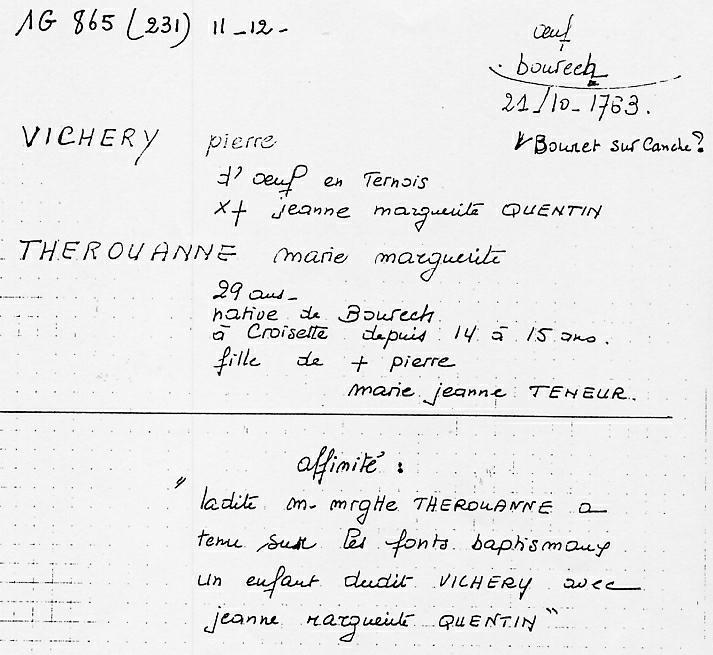 1G 865 (231) 11-12-
œuf
bourech
21/10-1763.
Bouret sur Canche?
VICHERY pierre
d'œuf en Ternois
x+ jeanne marguerite QUENTIN
THEROUANNE marie marguerite
29 ans-
native de Bourech
à Croisette depuis 14 à 15 ans.
fille de + pierre
marie jeanne TENEUR.
affinité :
" ladite m- mrgtte THEROUANNE a
tenu sur les fonts baptismaux
un enfant dudit VICHERY avec
jeanne marguerite QUENTIN "